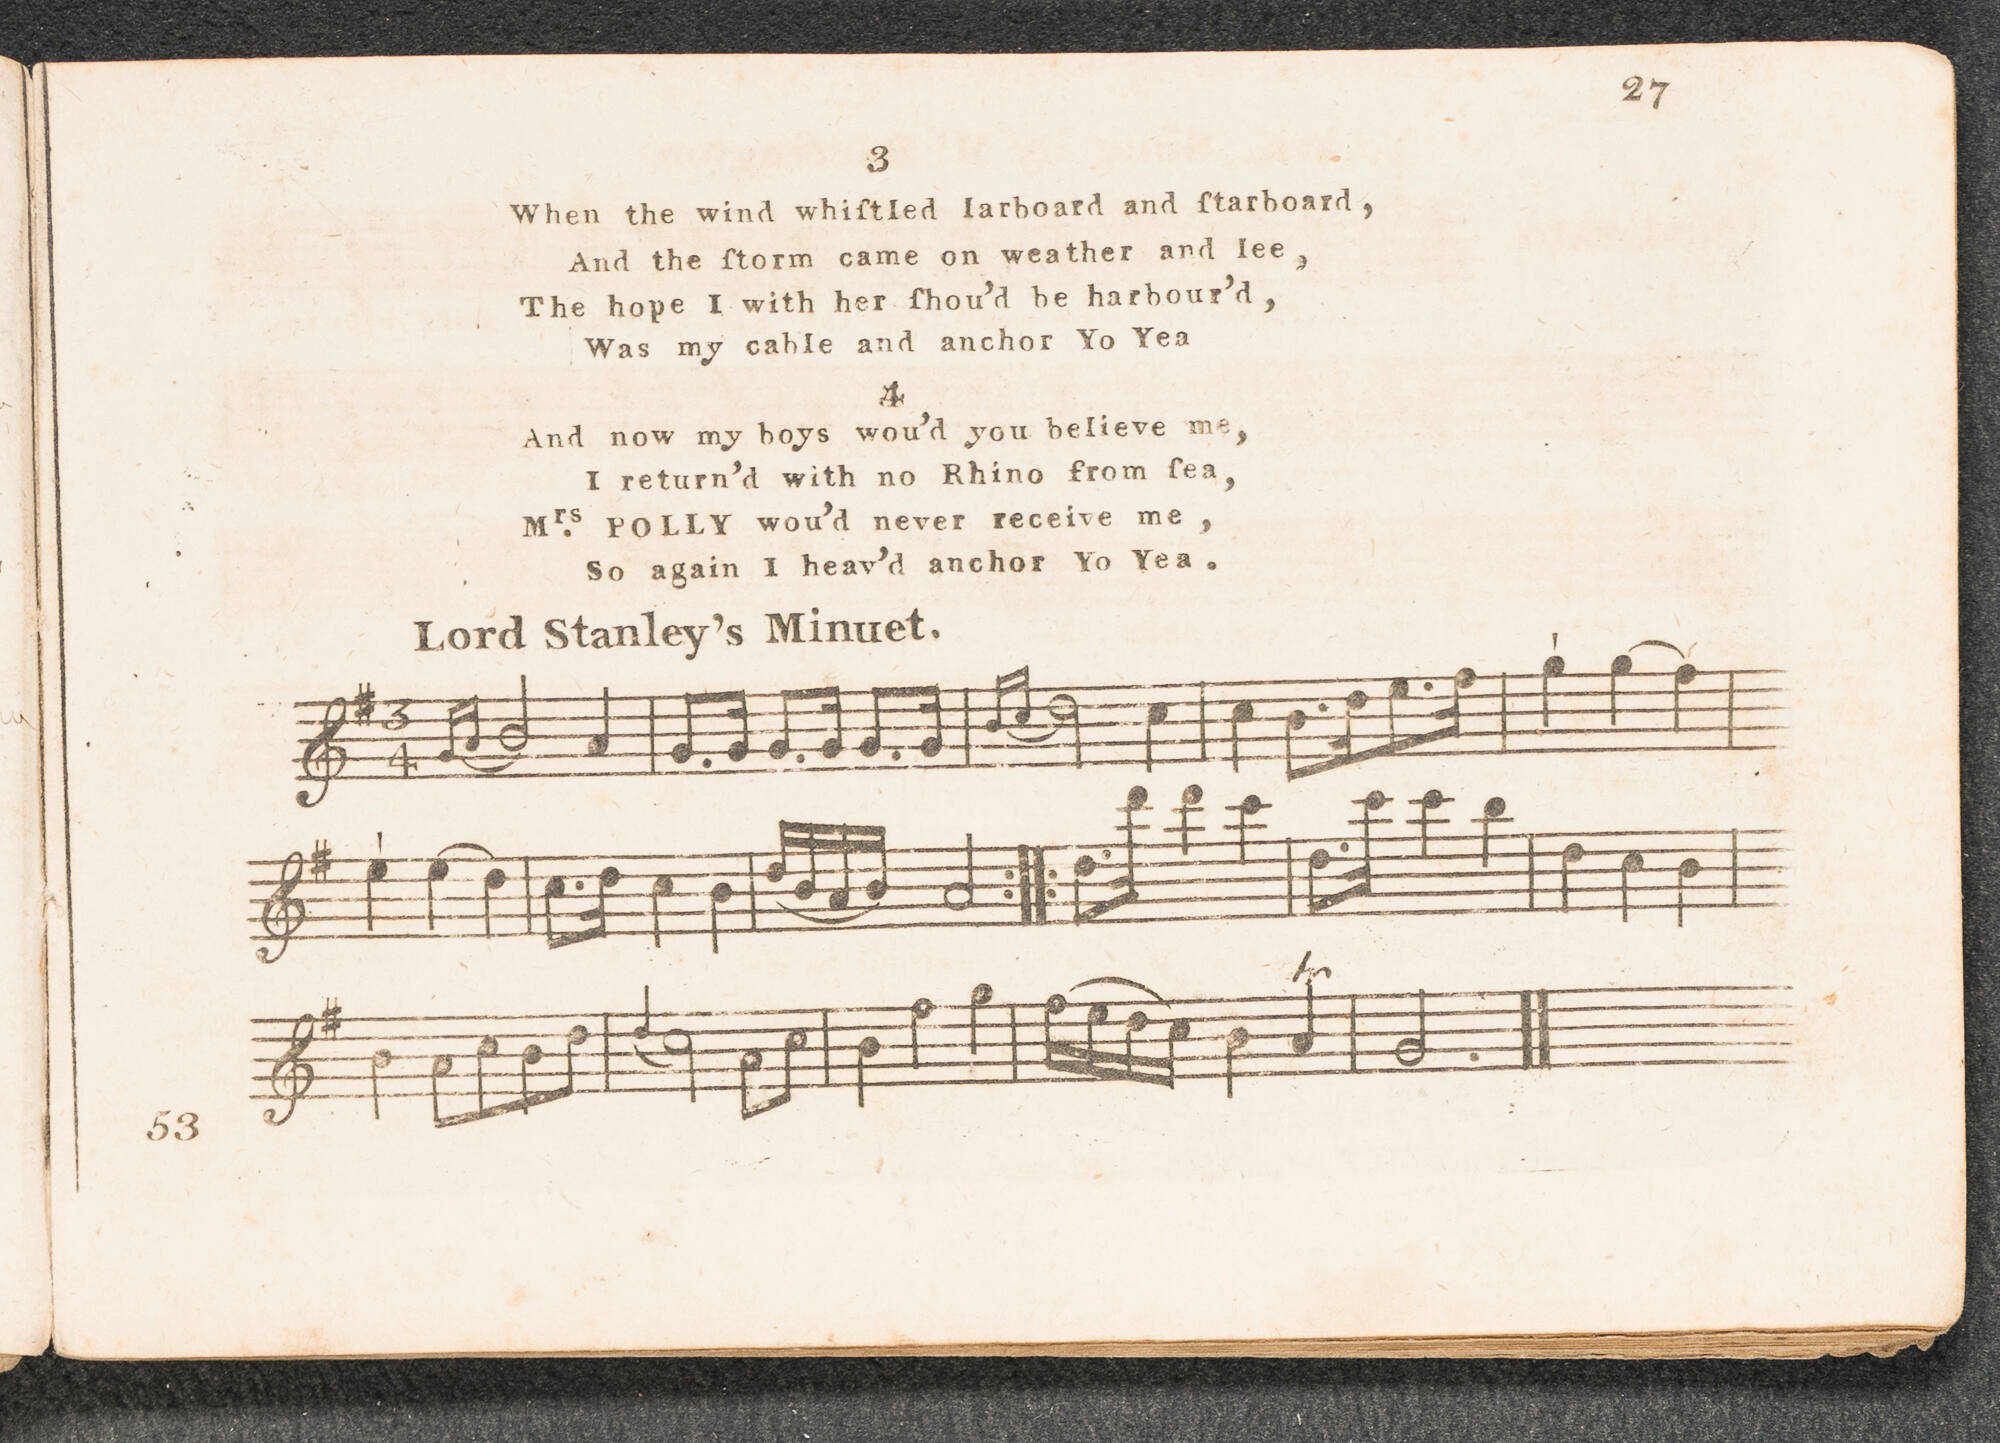 27
3
When the wind whiſtled larboard and ſtarboard,
And the ſtorm came on weather and lee,
The hope I with her ſhou'd be harbour'd,
Was my cable and anchor Yo Yea
4
And now my boys wou'd you believe me,
I return'd with no Rhino from ſea,
Mrs. POLLY wou'd never receive me,
So again I heav'd anchor Yo Yea.
Lord Stanley's Minuet.
3
4
tr
53